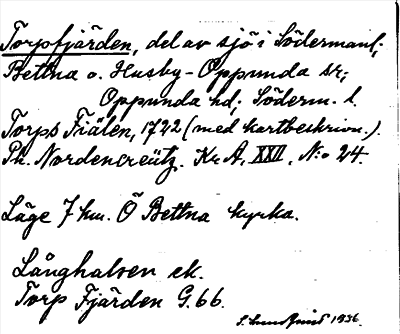 Torpfjärden, del av sjö i Södermanl.;
Bettna o. Husby-Oppunda sr;
Oppunda hd; Söderm. l.
Torps Fiälen, 1722 (med kartbeskrivn.).
Ph. Nordencreütz. Kr A, XXII, N:o 24.
Läge 7 km. Ö Bettna kyrka.
Långhalsen ek.
Torp Fjärden G.66.
1936.